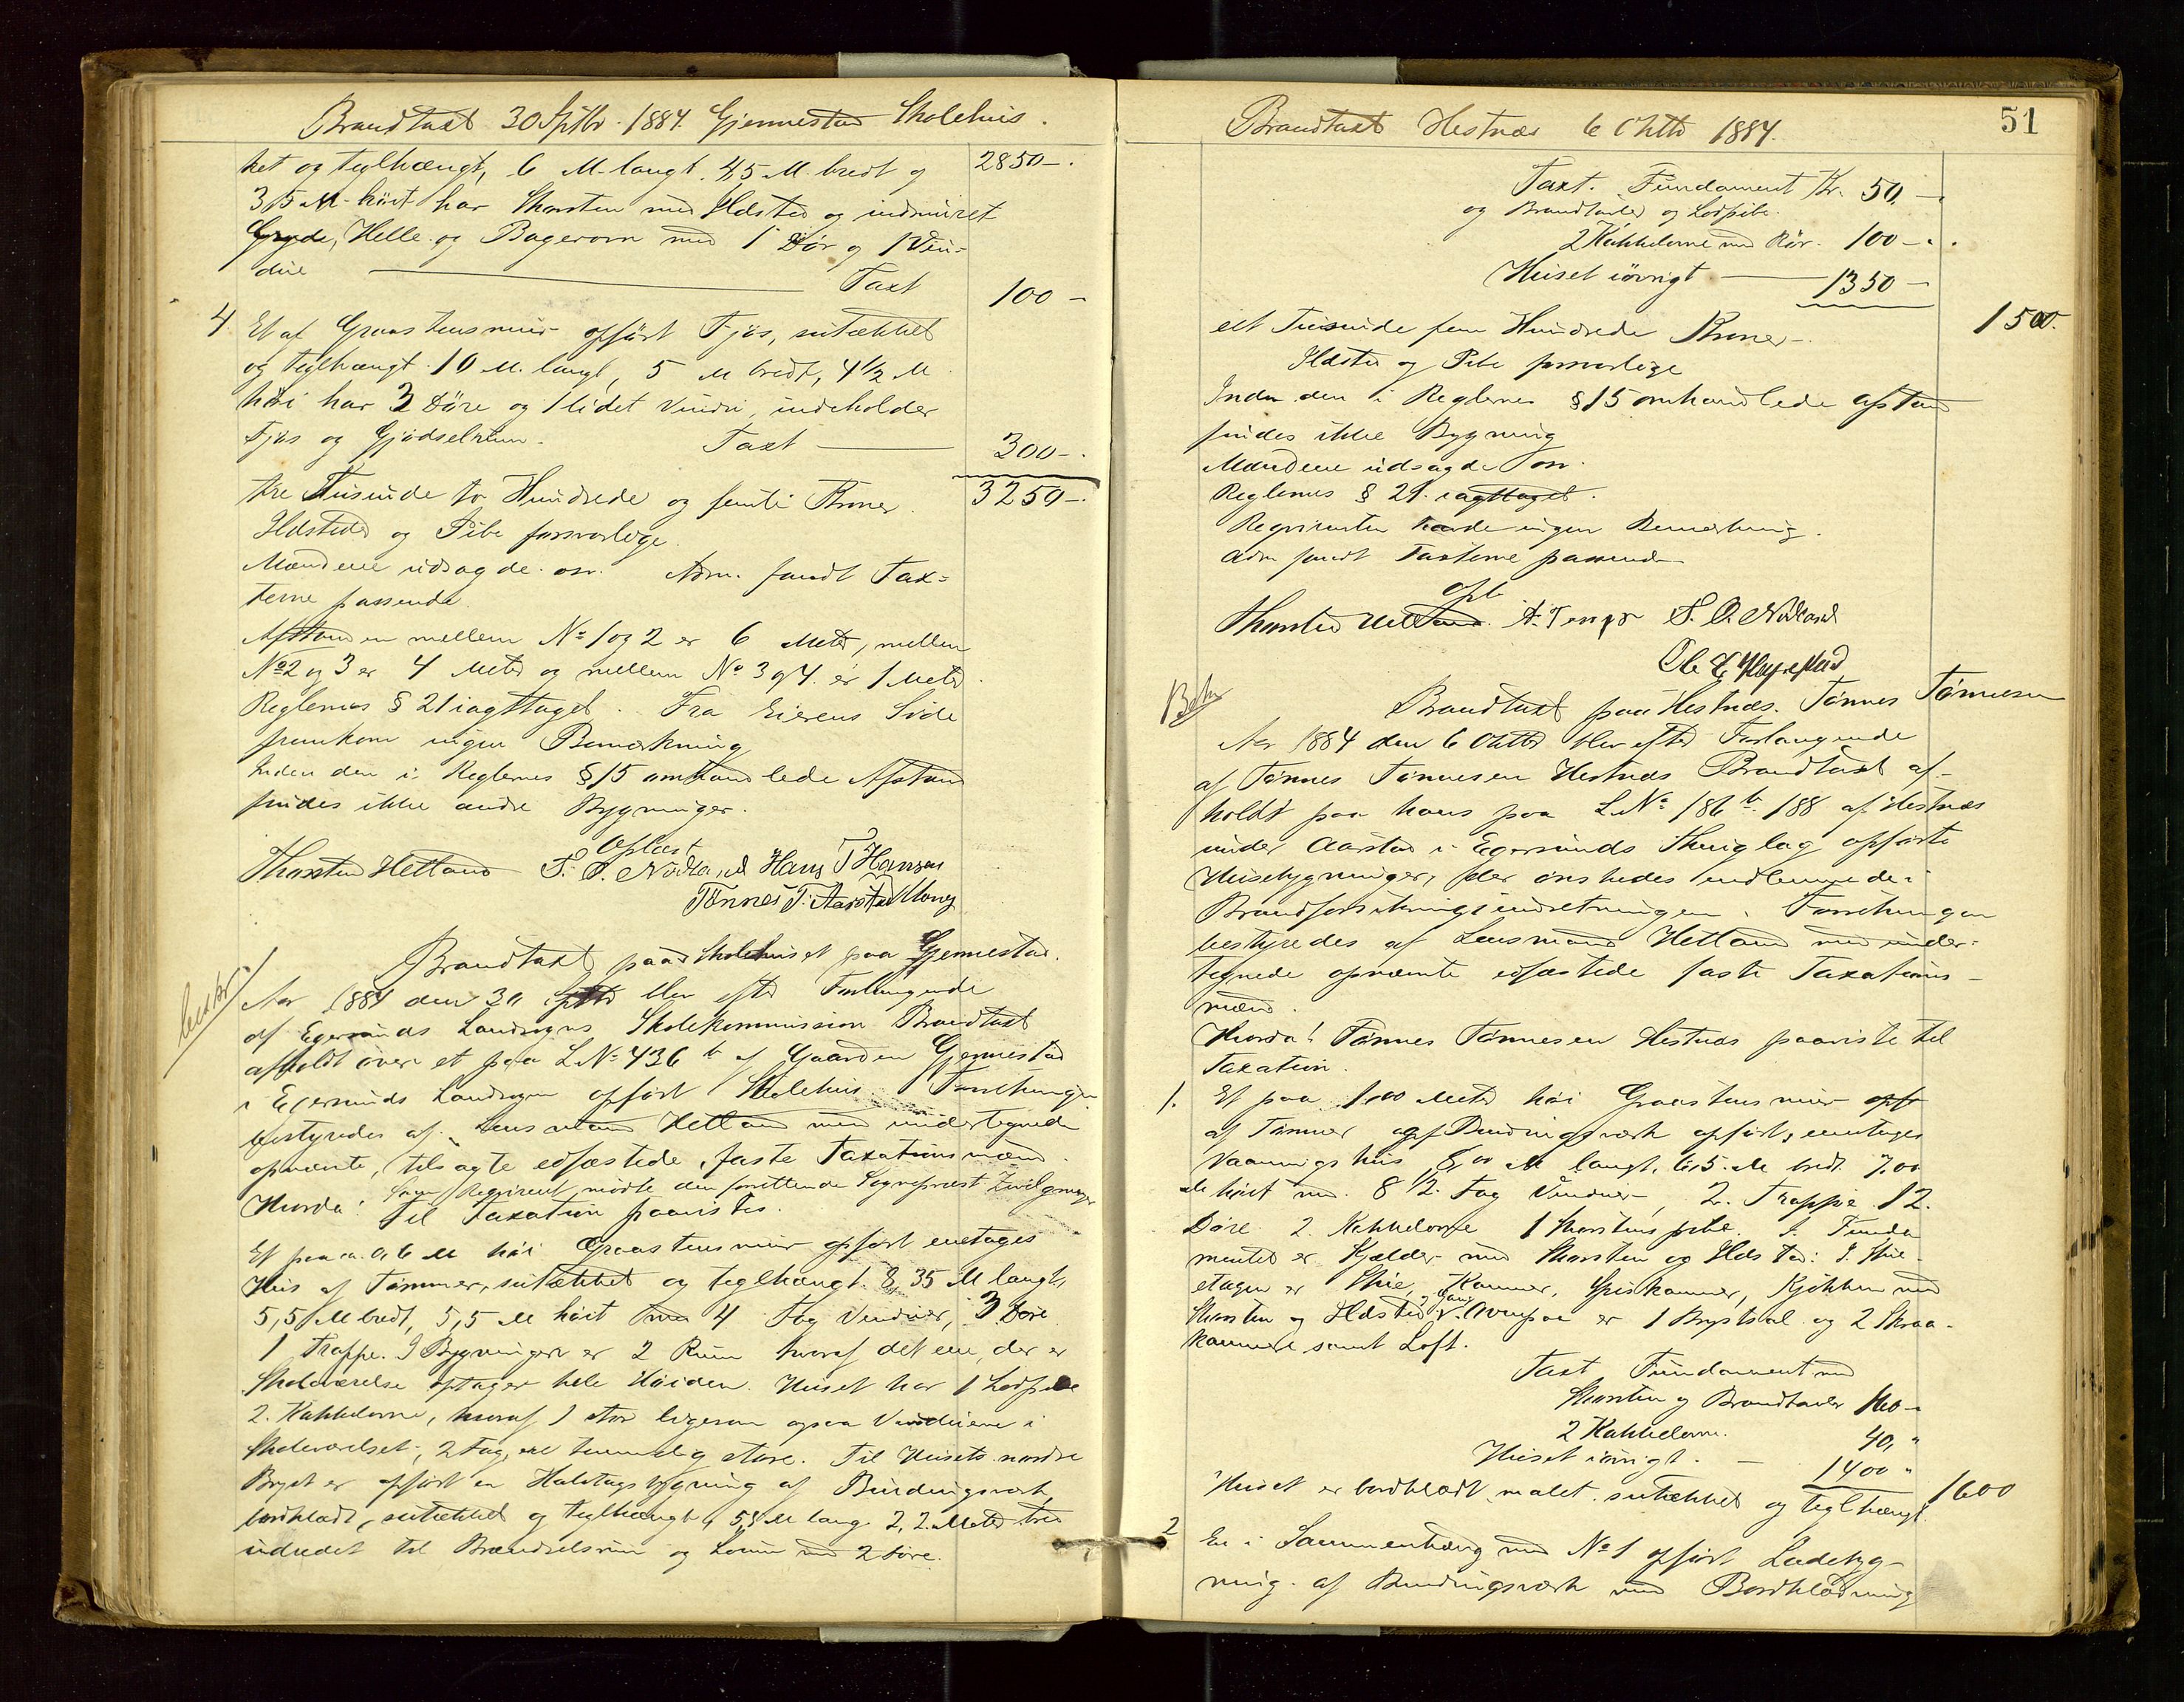 Brandtaxt 30 Sptbr. 1884. Gjennestad Skolehus.
ket og teglhængt, 6 M. langt, 4,5 M. bredt og 2850-.
3,5 M. höit har Skorsten med Ildsted og indmüret
Gryde, Helle og Bagerovn med 1 Dör og 1 Vin-
due Taxt 100 -
4 Et af Graastensmür opfört Fjös, sutækket
og teglhængt 10 M. langt, 5 M bredt, 4 1/2 M
höi har 3 Döre og 1 lidet Vindu, indeholder
Fjös og Gjödselrum. Taxt 300-.
tre Tusinde to Hundrede og femti Kroner. 3250-.
Ildsteder og Pibe forsvarlige.
Mændene udsagde osv. Adm. fandt Tax=
terne passende.
Afstanden mellem No 1 og 2 er 6 Meter, mellem
No 2 og 3 er 4 Meter og mellem No 3 og 4 er 1 Meter.
Reglernes § 21 iagttaget. Fra Eierens Side
fremkom ingen Bemærkning
Inden den i Reglernes § 15 omhandlede Afstand
findes ikke andre Bygninger.
Oplæst
Thorsten Hetland S. O. Nödland Hans T Hansen
Tönnes T. Aarstad Mong
Brandtaxt paa Skolehuset paa Gjennestad.
Aar 1884 den 30 Sptbr blev efter Forlangende
af Egersunds Landsogns Skolekommission Brandtaxt
afholdt over et paa L No 436 b af Gaarden Gjennestad
i Egersunds Landsogn opfört Skolehus. Forretningen
bestyredes af Lensmand Hetland med undertegnede
opnævnte, tilsagte edfæstede, faste Taxationsmænd.
Hvorda: Som Reqvirent mödte den forrettende Sogneprest
Til Taxation paavistes.
Et paa ca. 0,6 M höi Graastensmür opfört enetages
Hus af Tömmer, sutækket og teglhængt 8,35 M langt,
5,5 M bredt, 5,5 M höit med 4 Fag Vinduer, 3 Döre
1 Trappe. I Bygningen er 2 Rum hvoraf det ene, der er
Skoleværelse optager hele Höiden. Huset har 1 Lodpibe
2. Kakkelovne, hvoraf 1 stor ligesom ogsaa Vinduerne i
Skoleværelset, 2 Fag, ere temmelig store. Til Husets nordre
Bryst er opfört en Halvtagsbygning af Bindingsværk,
bordklædt, sutækket og teglhængt, 5,5 M lang 2,2 Meter bred
indredet til Brændselsrum og Lokum med 2 Döre.
Brandtaxt Hestnæs 6 Oktbr 1884. 51
Taxt. Fundament Kr. 50,-.
og Brandtavler og Lodpibe.
2 Kakkelovne med Rör. 100-.
Huset iövrigt 1350-
eet Tusinde fem Hundrede Kroner-. 1500.
Ildsted og Pibe forsvarlige
Inden den i Reglernes § 15 omhandlede Afstand
findes ikke Bygning
Mændene udsagde osv.
Reglernes § 21. iagttaget.
Reqvirenten havde ingen Bemærkning.
Adm fandt Taxterne passende
Opl
Thorsten Hetland. S. O. Nödland
Brandtaxt paa Hestnæs. Tönnes Tönnesen
Aar 1884 den 6 Oktbr blev efter Forlangende
af Tönnes Tönnesen Hestnæs Brandtaxt af-
holdt paa hans paa L No 186 b 188 af Hestnæs
under Aarstad i Egersunds Thinglag opförte
Husebygninger, der önskedes indlemmede i
Brandforsikringsindretningen. Forretningen
bestyredes af Lensmand Hetland med under-
tegnede opnævnte edfæstede faste Taxations-
mænd.
Hvorda! Tönnes Tönnesen Hestnæs paaviste til
Taxation.
1. Et paa 1,00 Meter höi Graastensmür opf
af Tömmer og Bindingsværk opfört, enetages
Vaaningshus 8,00 M langt, 6,5 M bredt 7,00
M höit med 8 1/2 Fag Vinduer, 2. Trappe 12.
Döre 2 Kakkelovne 1 Skorstenspibe. I Funda
mentet er Kjælder med Skorsten og Ildsted: I Stue-
etagen er Stue, Kammer, Spiskammer, Kjökken med
Skorsten og Ildsted og Gang. Ovenpaa er 1 Brystsal og 2 Skraa-
kammere samt Loft.
Taxt Fundament med
Skorsten og Brandtavler 160-
2 Kakkelovne. 40, "
Huset iövrigt. - 1400 "
Huset er bordklædt, malet, sutækket og teglhængt. 1600
2 En i Sammenhæng med No 1 opfört Ladebyg-
ning af Bindingsværk med Bordklædning